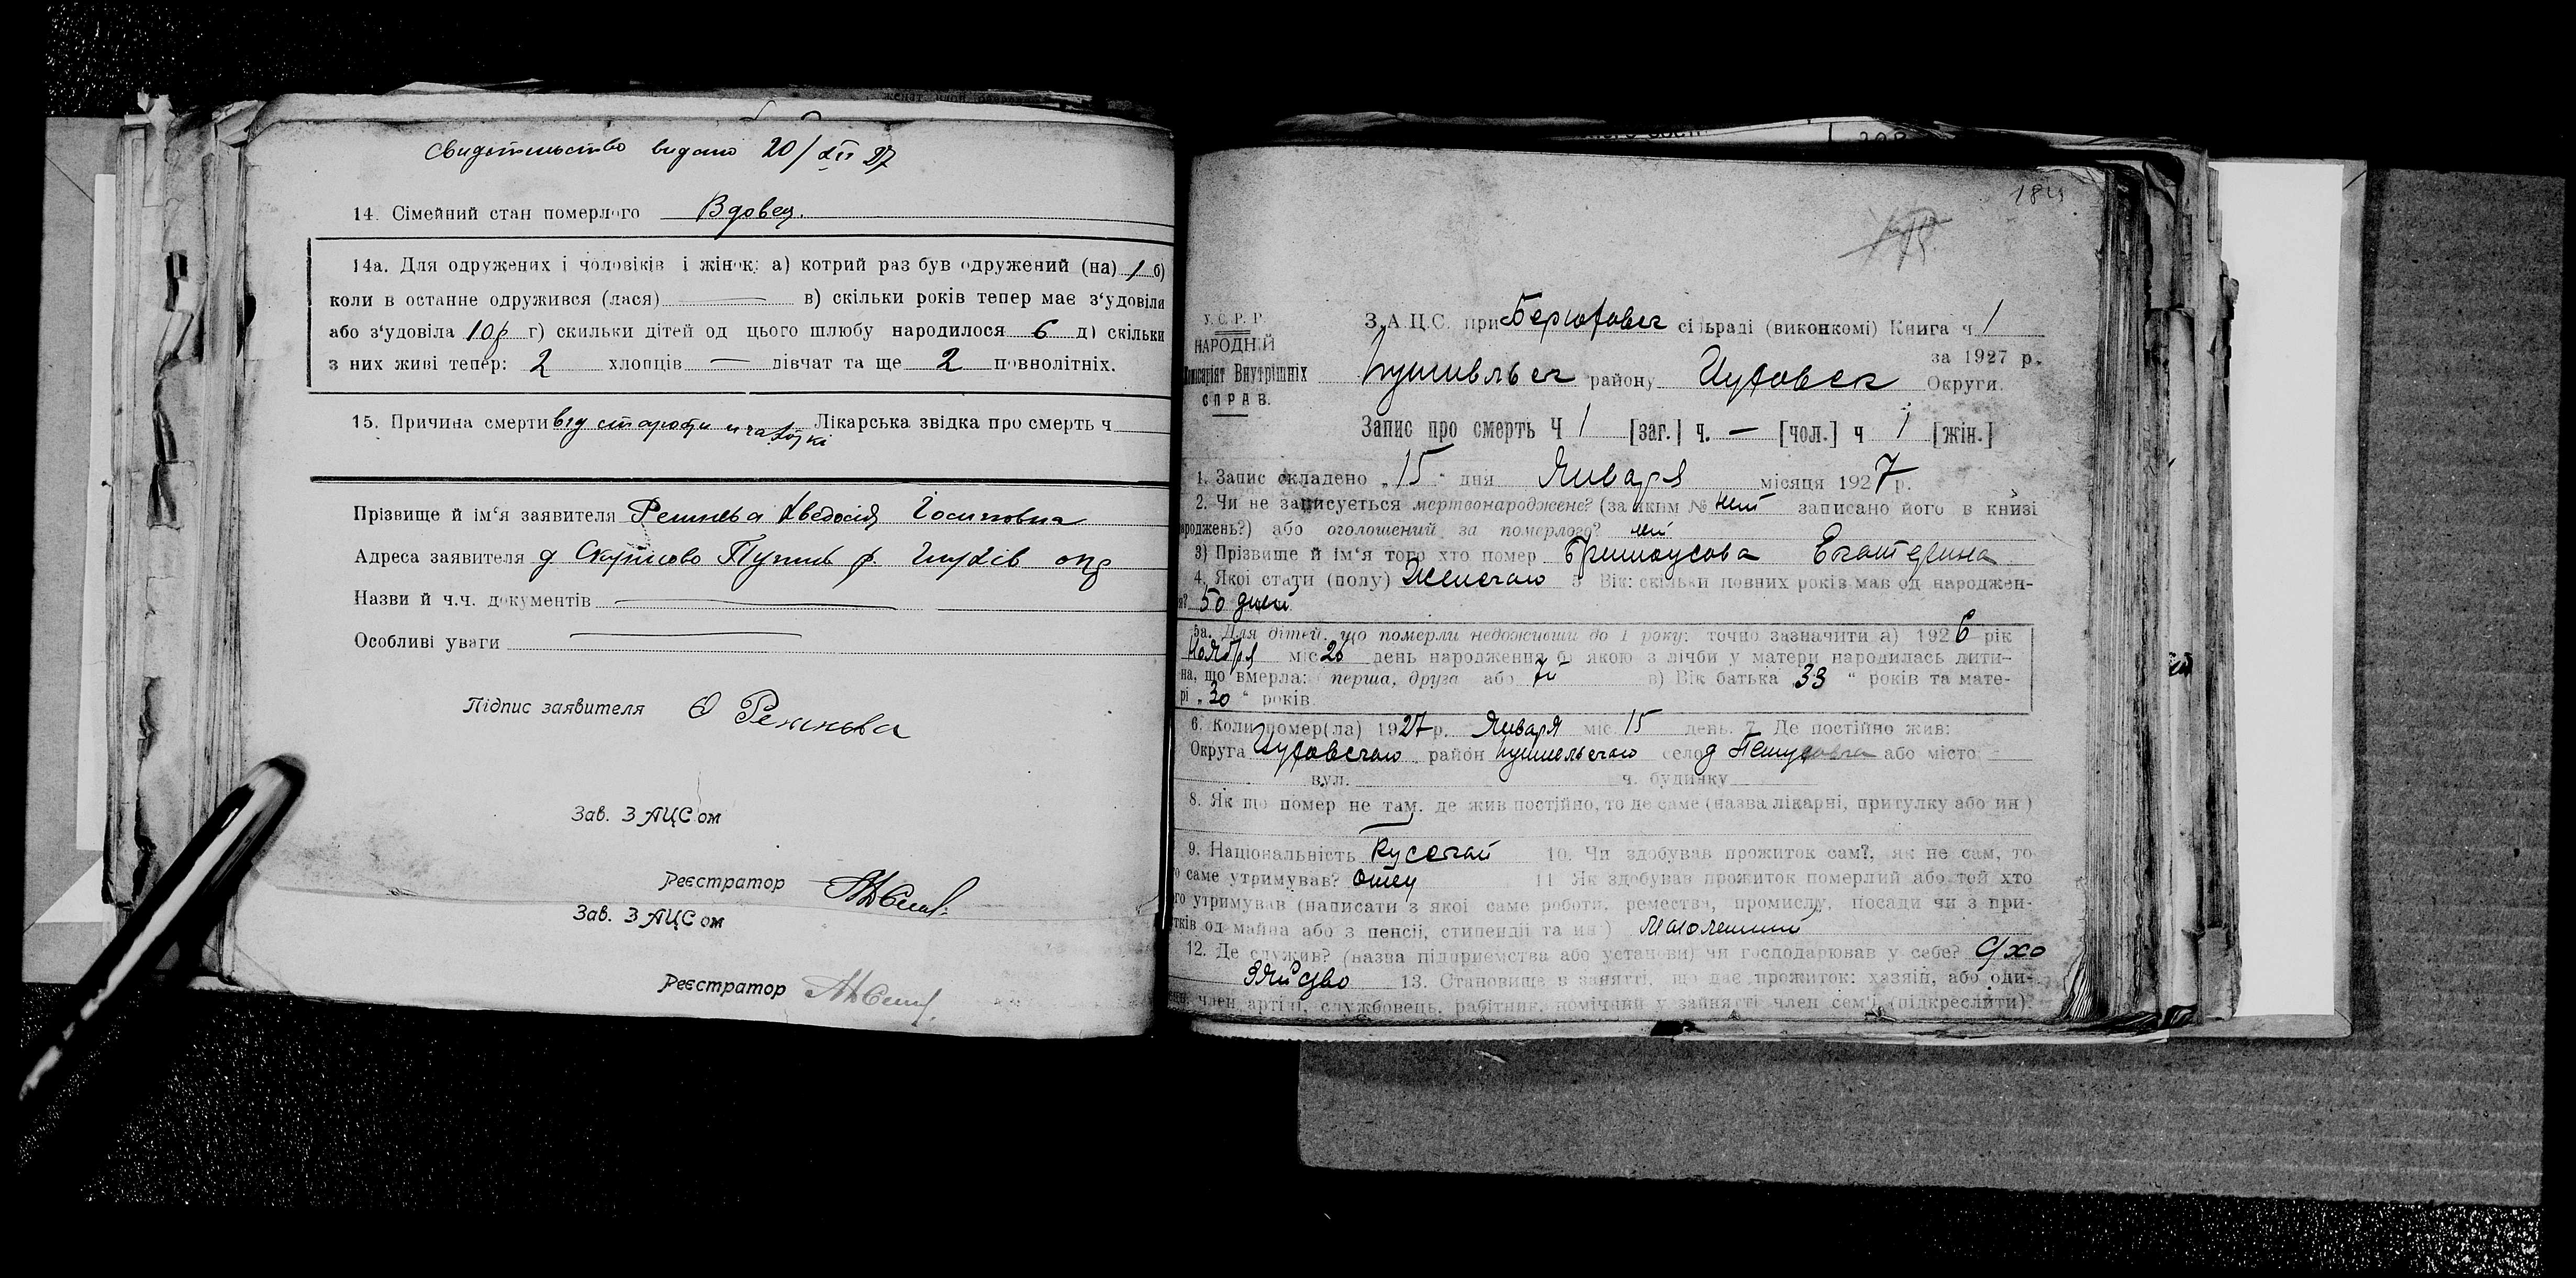 Свидетельство видано 20/XII 27
14. Сімейний стан померлого Вдовец.
14а. Для одружених і чоловіків і жінок: а) котрий раз був одружений (на) 1 б)
коли в останнє одружився (лася) — в) скільки років тепер має з‘удовіли
або з‘удовіла 10 р г) скильки дітей од цього шлюбу народилося 6 д) скільки
з них живі тепер: 2 хлопців — дівчат та ще 2 повнолітніх.
15. Причина смерти від старости Лікарська звідка про смерть ч
Прізвище й ім‘я заявителя Аведосія Іосиповна
Адреса заявителя д Скуписово Путив р. Глухів окр
Назви й ч.ч. документів —
Особливі уваги —
Підпис заявителя
Зав. ЗАЦС‘ом
Реєстратор
Зав. ЗАЦС‘ом
Реєстратор
184
У.С.Р.Р. З.А.Ц.С. при сільраді (виконкомі) Книга ч 1
НАРОДНІЙ за 1927 р.
Комісаріят Внутрішніх Путивльск району Глуховск Округи.
СПРАВ.
Запис про смерть Ч 1 [заг.] ч. — [чол.] ч 1 [жін.]
1. Запис складено „15“ дня Января місяця 1927 р.
2. Чи не записується мертвонароджене? (за яким № нет записано його в книзі
народжень?) або оголошений за померлого? нет
3) Прізвище й ім‘я того хто помер Екатерина
4. Якої стати (полу) Женского 5 Вік: скільки повних років мав од народжен-
ня? 50 дней
5а. Для дітей, що померли недоживши до 1 року: точно зазначити а) 1926 рік
Ноября міс 26 день народження б) якою з лічби у матери народилась дити-
на, що вмерла: перша, друга або 7й в) Вік батька 33 “ років та мате-
рі „30“ років
6. Коли помер(ла) 1927 р. Января міс. 15 день. 7 Де постійно жив:
Округа Глуховского район Путивльского село д або місто —
вул. ч. будинку
8. Як що помер не там, де жив постійно, то де саме (назва лікарні, притулку або ин)
9. Національність Русский 10. Чи здобував прожиток сам?, як не сам, то
хто саме утримував? Отец 11 Як здобував прожиток померлий або той хто
його утримував (написати з якої саме роботи, ремества, промислу, посади чи з при-
бутків од майна або з пенсії, стипендії та ин)
12. Де служив? (назва підприємства або установи) чи господарював у себе? С/хо
зяйсдво 13. Становище в занятті, що дає прожиток: хазяїн, або оди-
нак, член артілі, службовець, рабітник, помічний у зайнятті член сем‘ї (підкреслити).